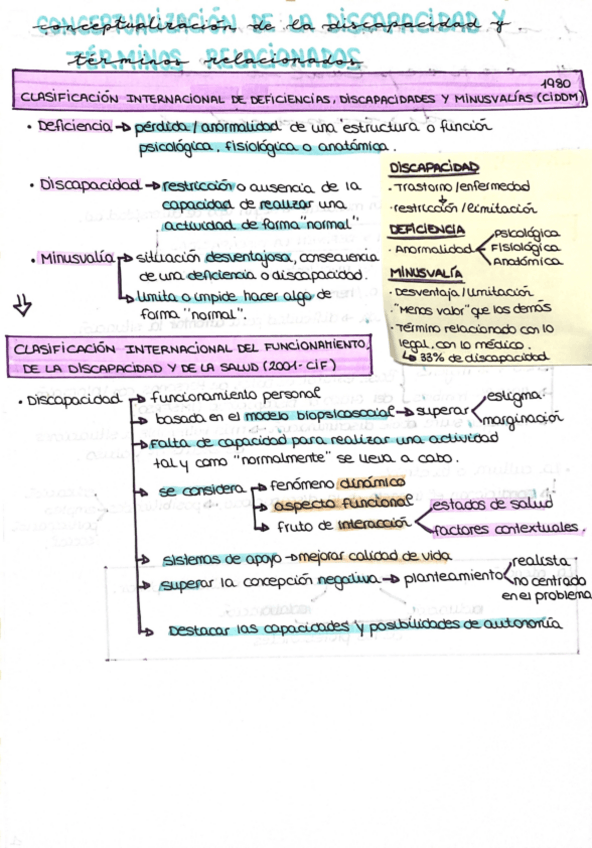 CONCEPTUALIZACIÓN DE LA DISCAPACIDAD Y
TÉRMINOS RELACIONADOS
1980
CLASIFICACIÓN INTERNACIONAL DE DEFICIENCIAS, DISCAPACIDADES Y MINUSVALÍAS (CIDDM)
• Deficiencia → pérdida / anormalidad de una estructura o función
psicológica, fisiológica o anatómica.
• Discapacidad → restricción o ausencia de la
capacidad de realizar una
actividad de forma "normal"
• Minusvalía → situación desventajosa, consecuencia
de una deficiencia o discapacidad.
→ Limita o impide hacer algo de
forma "normal".
DISCAPACIDAD
· Trastorno / enfermedad
↓
· restricción / limitación
DEFICIENCIA
· Anormalidad
Psicológica
Fisiológica
Anatómica
MINUSVALÍA
· Desventaja / limitación
· "Menos valor" que los demás
· Término relacionado con lo
legal, con lo médico.
↳ 33% de discapacidad
⇓
CLASIFICACIÓN INTERNACIONAL DEL FUNCIONAMIENTO,
DE LA DISCAPACIDAD Y DE LA SALUD (2001-CIF)
• Discapacidad → funcionamiento personal
→ basada en el modelo biopsicosocial → superar
estigma
marginación
→ Falta de capacidad para realizar una actividad
tal y como "normalmente" se lleva a cabo.
→ se considera → fenómeno dinámico
→ aspecto funcional
→ fruto de interacción
estados de salud
factores contextuales.
→ sistemas de apoyo → mejorar calidad de vida
→ superar la concepción negativa → planteamiento
realista
no centrado
en el problema
→ Destacar las capacidades y posibilidades de autonomía